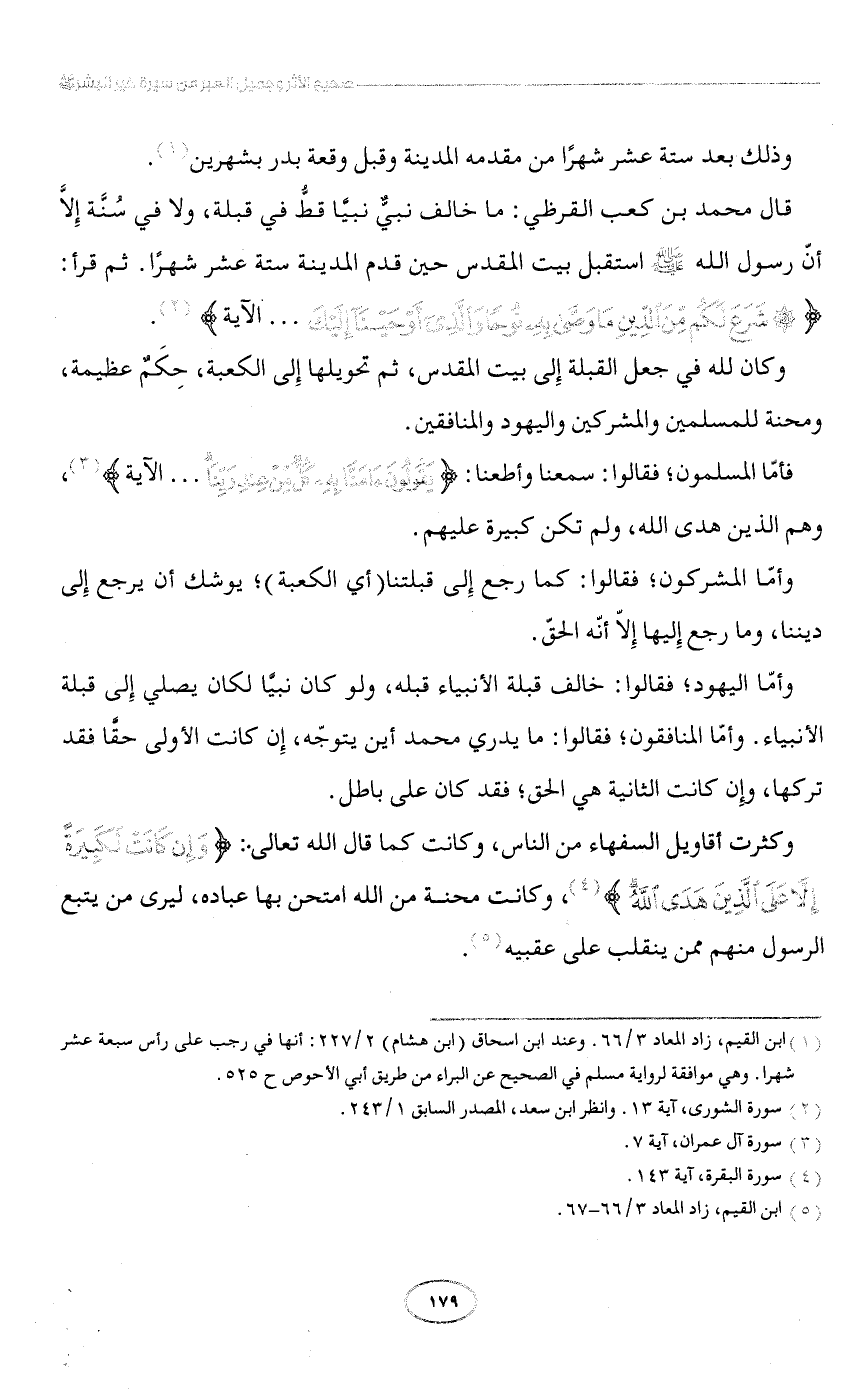 صحيح الأثر وجميل العبر من سيرة خير البشر ﷺ
وذلك بعد ستة عشر شهرًا من مقدمه المدينة وقبل وقعة بدر بشهرين(١).
قال محمد بن كعب القرظي: ما خالف نبيٌّ نبيًّا قطُّ في قبلة، ولا في سُنَّة إلاَّ
أنّ رسول الله ﷺ استقبل بيت المقدس حين قدم المدينة ستة عشر شهرًا. ثم قرأ:
﴿ ۞ شَرَعَ لَكُم مِّنَ ٱلدِّينِ مَا وَصَّىٰ بِهِۦ نُوحًا وَٱلَّذِىٓ أَوْحَيْنَآ إِلَيْكَ ... الآية ﴾(٢).
وكان لله في جعل القبلة إلى بيت المقدس، ثم تحويلها إلى الكعبة، حِكَمٌ عظيمة،
ومحنة للمسلمين والمشركين واليهود والمنافقين.
فأمّا المسلمون؛ فقالوا: سمعنا وأطعنا: ﴿ يَقُولُونَ ءَامَنَّا بِهِۦ كُلٌّ مِّنْ عِندِ رَبِّنَا ... الآية ﴾(٣)،
وهم الذين هدى الله، ولم تكن كبيرة عليهم.
وأمّا المشركون؛ فقالوا: كما رجع إلى قبلتنا(أي الكعبة)؛ يوشك أن يرجع إلى
ديننا، وما رجع إليها إلاّ أنّه الحقّ.
وأمّا اليهود؛ فقالوا: خالف قبلة الأنبياء قبله، ولو كان نبيًّا لكان يصلي إلى قبلة
الأنبياء. وأمّا المنافقون؛ فقالوا: ما يدري محمد أين يتوجّه، إن كانت الأولى حقًّا فقد
تركها، وإن كانت الثانية هي الحق؛ فقد كان على باطل.
وكثرت أقاويل السفهاء من الناس، وكانت كما قال الله تعالى: ﴿ وَإِن كَانَتْ لَكَبِيرَةً
إِلَّا عَلَى ٱلَّذِينَ هَدَى ٱللَّهُ ﴾(٤)، وكانت محنة من الله امتحن بها عباده، ليرى من يتبع
الرسول منهم ممن ينقلب على عقبيه(٥).
(١) ابن القيم، زاد المعاد ٣/ ٦٦. وعند ابن اسحاق (ابن هشام) ٢/ ٢٢٧: أنها في رجب على رأس سبعة عشر
شهرا. وهي موافقة لرواية مسلم في الصحيح عن البراء من طريق أبي الأحوص ح ٥٢٥.
(٢) سورة الشورى، آية ١٣. وانظر ابن سعد، المصدر السابق ١/ ٢٤٣.
(٣) سورة آل عمران، آية ٧.
(٤) سورة البقرة، آية ١٤٣.
(٥) ابن القيم، زاد المعاد ٣/ ٦٦-٦٧.
١٧٩